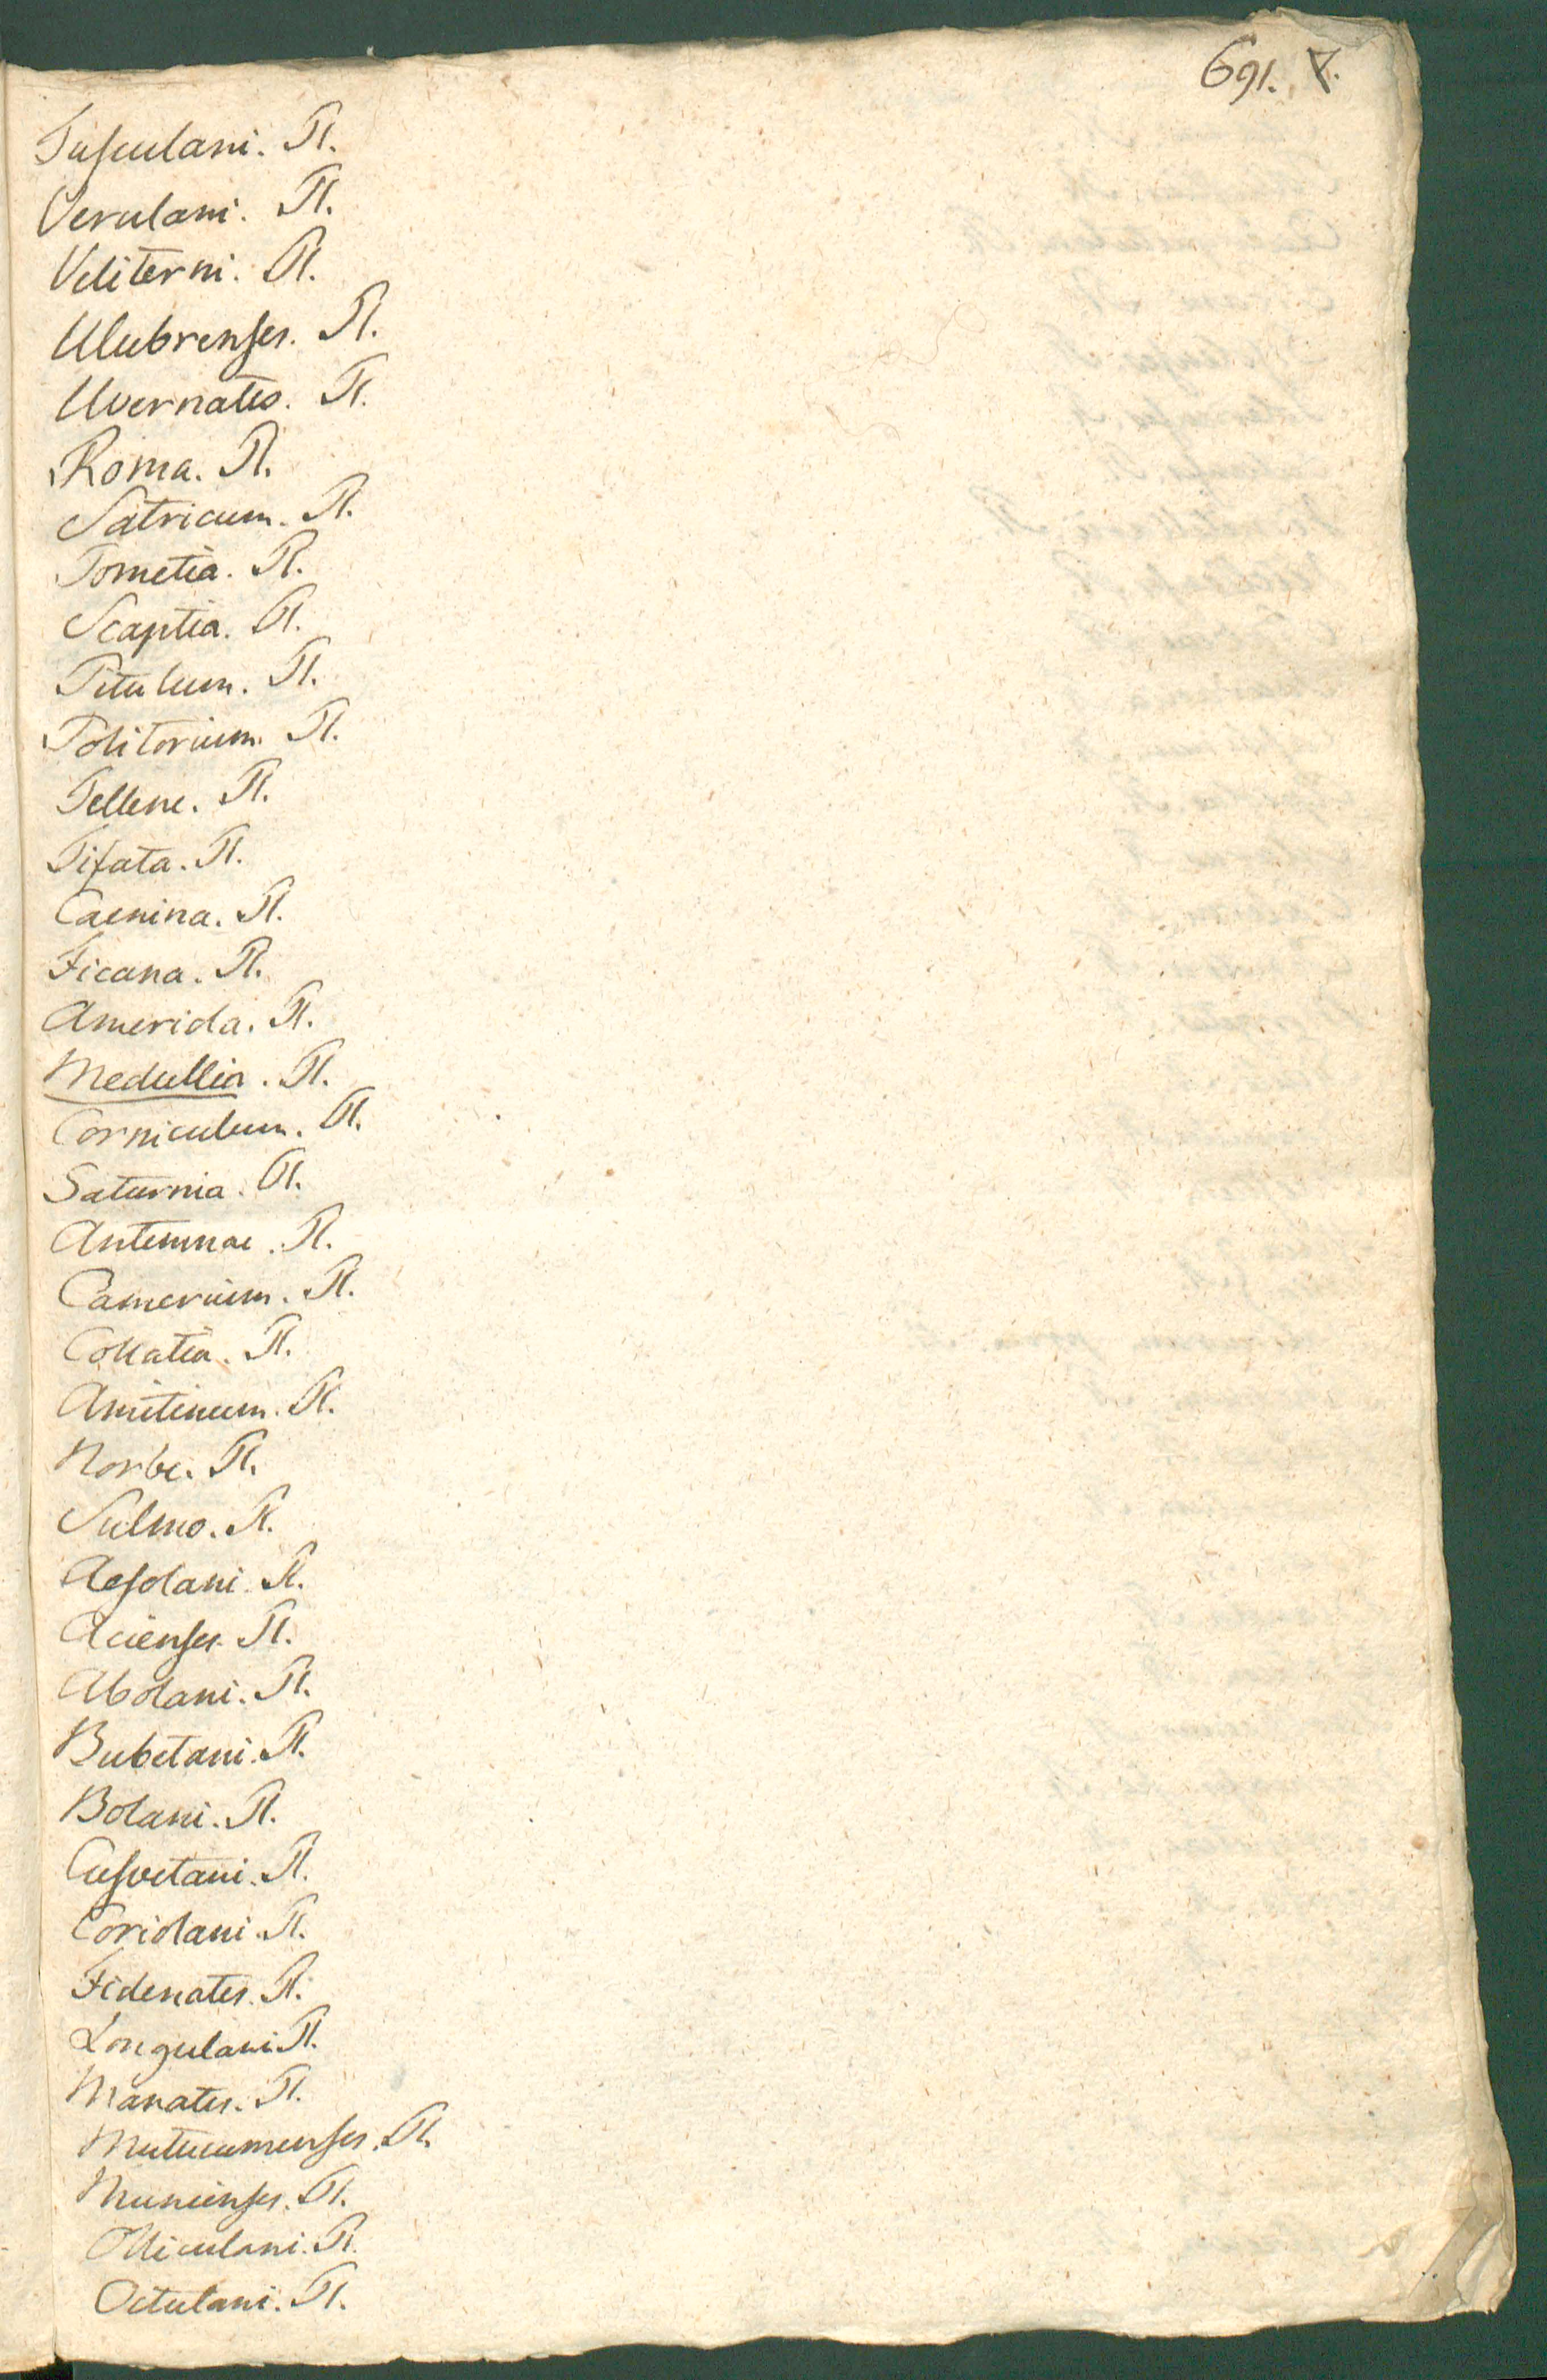 691. 7.
Tusculani. Pl.
Verulani. Pl.
Veliterni. Pl.
Ulubrenses. Pl.
Uvernates. Pl.
Roma. Pl.
Satricum. Pl.
Pometia. Pl.
Scaptia. Pl.
Pitulum. Pl.
Politorium. Pl.
Tellene. Pl.
Tifata. Pl.
Caenina. Pl.
Ficana. Pl.
Amerida. Pl.
Medullia. Pl.
Corniculum. Pl.
Saturnia. Pl.
Antemnae. Pl.
Camerium. Pl.
Collatia. Pl.
Amitinum. Pl.
Norbe. Pl.
Sulmo. Pl.
Aesolani. Pl.
Acienses. Pl.
Abolani. Pl.
Bubetani. Pl.
Bolani. Pl.
Cusvetani. Pl.
Coriolani. Pl.
Fidenates. Pl.
Longulani Pl.
Manates. Pl.
Mutucumenses. Pl.
Munienses. Pl.
Olliculani. Pl.
Octulani. Pl.